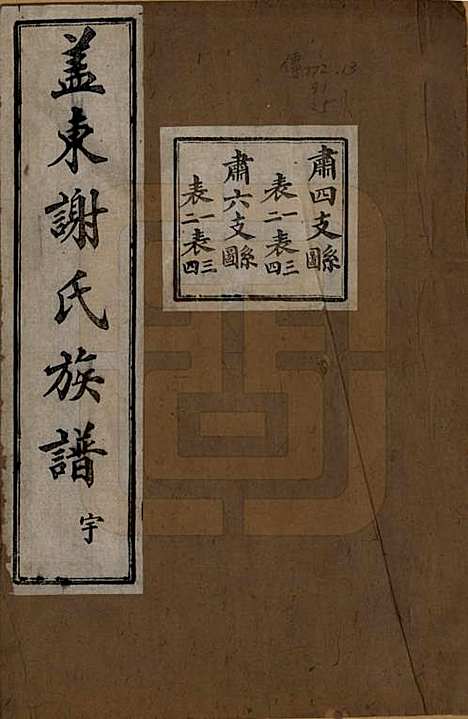 肅四支縣圖
表一二表三四
肅六支縣圖
表一二表三四
盖東謝氏族譜 宇